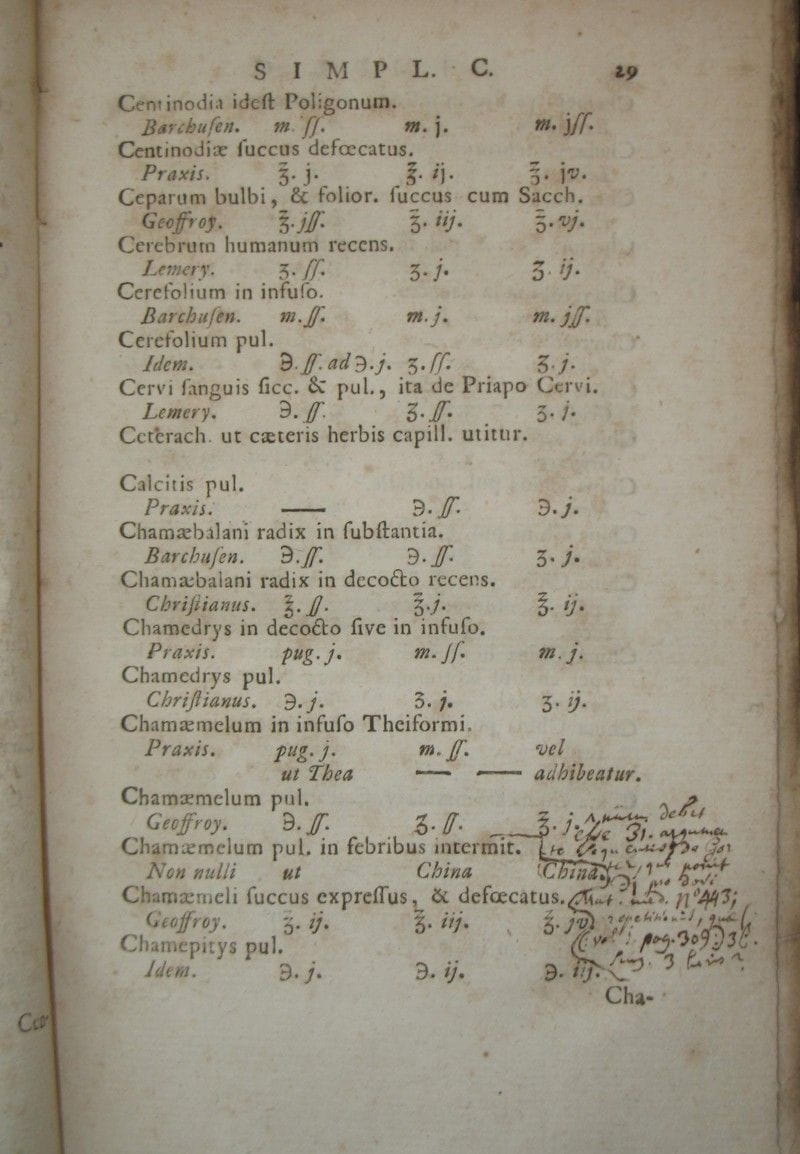 SIMPL. C. 29
Centinodia ideſt Poligonum.
Barchuſen. m. ſſ. m. j. m. jſſ.
Centinodiæ ſuccus defœcatus.
Praxis. ℥. j. ℥. ij. ℥. jv.
Ceparum bulbi, & folior. ſuccus cum Sacch.
Geoffroy. ℥. jſſ. ℥. iij. ℥. vj.
Cerebrum humanum recens.
Lemery. ʒ. ſſ. ʒ. j. ʒ. ij.
Cerefolium in infuſo.
Barchuſen. m. ſſ. m. j. m. jſſ.
Cerefolium pul.
Idem. ℈. ſſ. ad ℈. j. ʒ. ſſ. ʒ. j.
Cervi ſanguis ſicc. & pul., ita de Priapo Cervi.
Lemery. ℈. ſſ. ʒ. ſſ. ʒ. j.
Ceterach. ut cæteris herbis capill. utitur.
Calcitis pul.
Praxis. —— ℈. ſſ. ℈. j.
Chamæbalani radix in ſubſtantia.
Barchuſen. ℈. ſſ. ℈. ſſ. ʒ. j.
Chamæbalani radix in decocto recens.
Chriſtianus. ℥. ſſ. ℥. j. ℥. ij.
Chamedrys in decocto ſive in infuſo.
Praxis. pug. j. m. ſſ. m. j.
Chamedrys pul.
Chriſtianus. ℈. j. ʒ. j. ʒ. ij.
Chamæmelum in infuſo Theiformi.
Praxis. pug. j. m. ſſ. vel
ut Thea —— —— adhibeatur.
Chamæmelum pul.
Geoffroy. ℈. ſſ. ʒ. ſſ. ℥. j. debet
Chamæmelum pul. in febribus intermit. eſſe
Non nulli ut China China.
Chamæmeli ſuccus expreſſus, & defœcatus. nº 443;
Geoffroy. ℥. ij. ℥. iij. ℥. jv.
Chamepitys pul. pag. 309
Idem. ℈. j. ℈. ij. ℈. iij.
Cha-